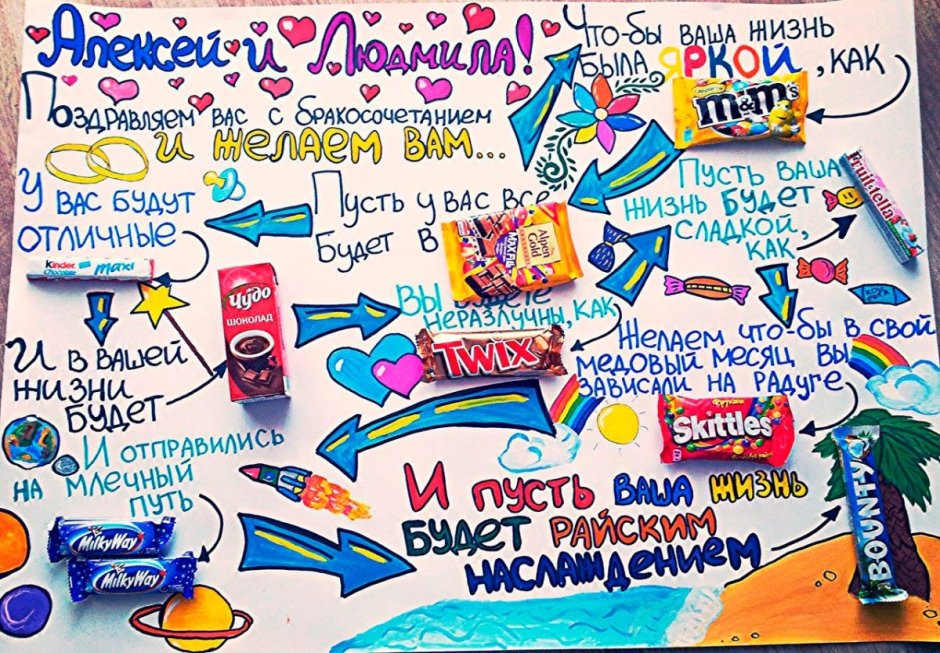 Алексей и Людмила!
Поздравляем вас с бракосочетанием
и желаем вам...
Что-бы ваша жизнь
была яркой, как
m&m's
Пусть ваша
жизнь будет
сладкой,
как
Fruit-tella
Пусть у вас все
будет в
Alpen
Gold
У вас будут
отличные
Kinder
Chocolate maxi
И в вашей
жизни
будет
Чудо
шоколад
Вы будете
неразлучны, как
TWIX
Желаем что-бы в свой
медовый месяц вы
зависали на радуге
Фрукты
Skittles
И отправились
на млечный
путь
MilkyWay
MilkyWay
И пусть ваша жизнь
будет райским
наслаждением
BOUNTY